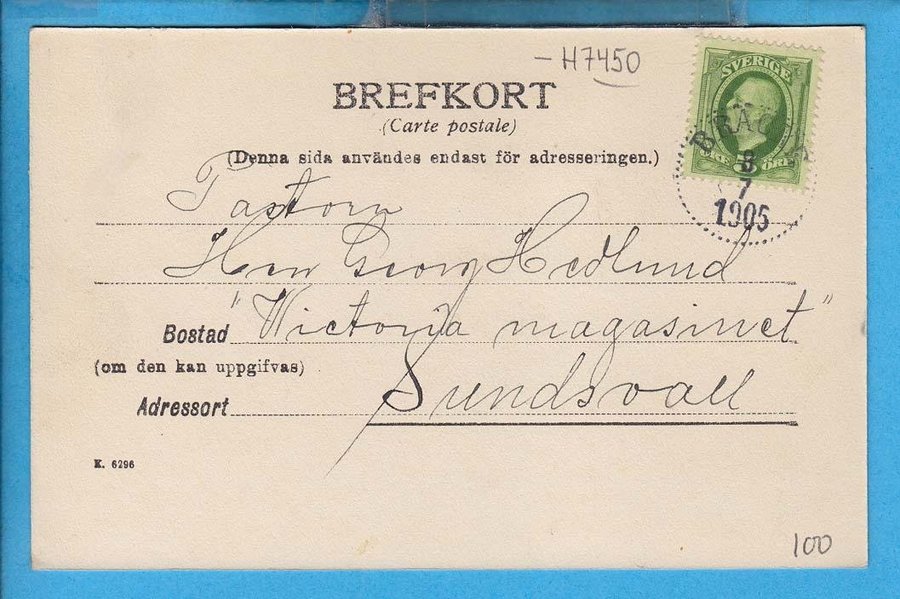 – H7450
BREFKORT
(Carte postale)
(Denna sida användes endast för adresseringen.)
SVERIGE
5
ÖRE ÖRE
BRÄC
8
7
1905
Pastorn
Herr Georg Hedlund
Bostad "Victoria magasinet"
(om den kan uppgifvas)
Adressort Sundsvall
K. 6296
100